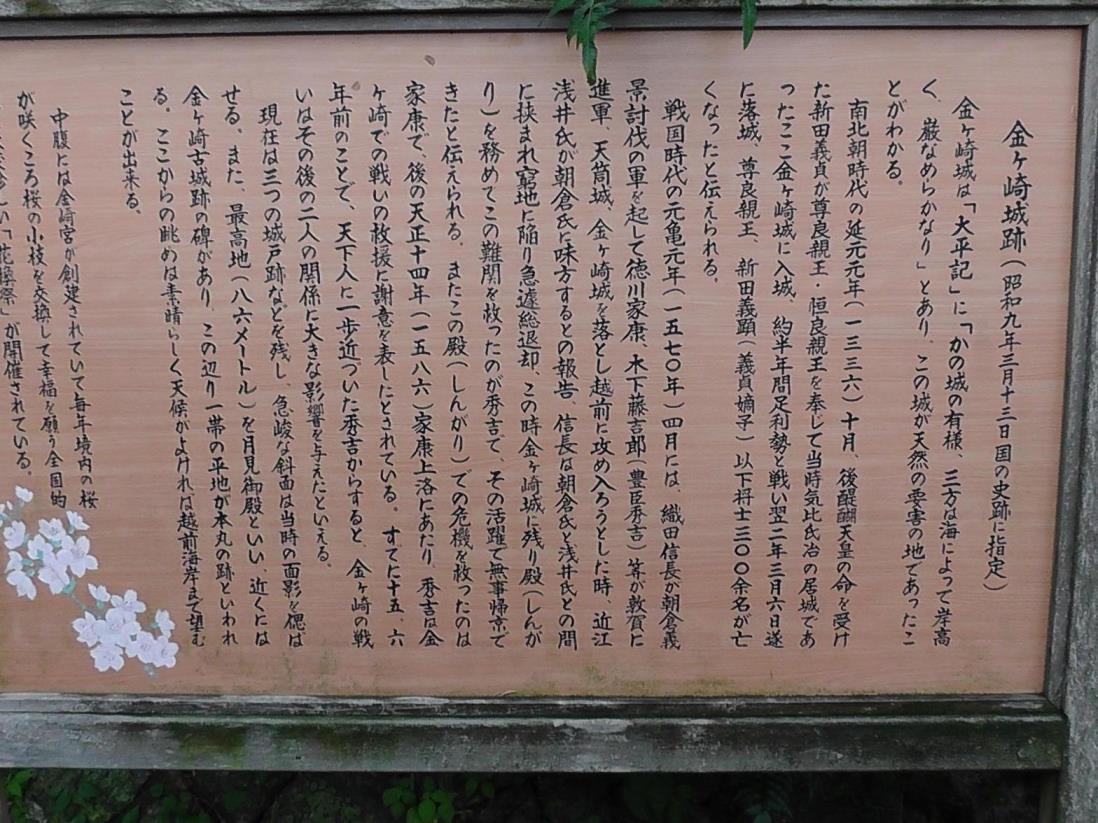 金ヶ崎城跡（昭和九年三月十三日国の史跡に指定）
金ヶ崎城は「大平記」に「かの城の有様、三方は海によって岸高
く、巌なめらかなり」とあり、この城が天然の要害の地であったこ
とがわかる。
南北朝時代の延元元年（一三三六）十月、後醍醐天皇の命を受け
た新田義貞が尊良親王・恒良親王を奉じて当時気比氏治の居城であ
ったここ金ヶ崎城に入城、約半年間足利勢と戦い翌二年三月六日遂
に落城、尊良親王、新田義顕（義貞嫡子）以下将士三〇〇余名が亡
くなったと伝えられる。
戦国時代の元亀元年（一五七〇年）四月には、織田信長が朝倉義
景討伐の軍を起して徳川家康、木下藤吉郎（豊臣秀吉）等が敦賀に
進軍、天筒城、金ヶ崎城を落とし越前に攻め入ろうとした時、近江
浅井氏が朝倉氏に味方するとの報告、信長は朝倉氏と浅井氏との間
に挟まれ窮地に陥り急遽総退却、この時金ヶ崎城に残り殿（しんが
り）を務めてこの難関を救ったのが秀吉で、その活躍で無事帰京で
きたと伝えられる。またこの殿（しんがり）での危機を救ったのは
家康で、後の天正十四年（一五八六）家康上洛にあたり、秀吉は金
ヶ崎での戦いの救援に謝意を表したとされている。すでに十五、六
年前のことで、天下人に一歩近づいた秀吉からすると、金ヶ崎の戦
いはその後の二人の関係に大きな影響を与えたといえる。
現在は三つの城戸跡などを残し、急峻な斜面は当時の面影を偲ば
せる。また、最高地（八六メートル）を月見御殿といい、近くには
金ヶ崎古城跡の碑があり、この辺り一帯の平地が本丸の跡といわれ
る。ここからの眺めは素晴らしく天候がよければ越前海岸まで望む
ことが出来る。
中腹には金崎宮が創建されていて毎年境内の桜
が咲くころ桜の小枝を交換して幸福を願う全国的
しい「花換祭」が開催されている。